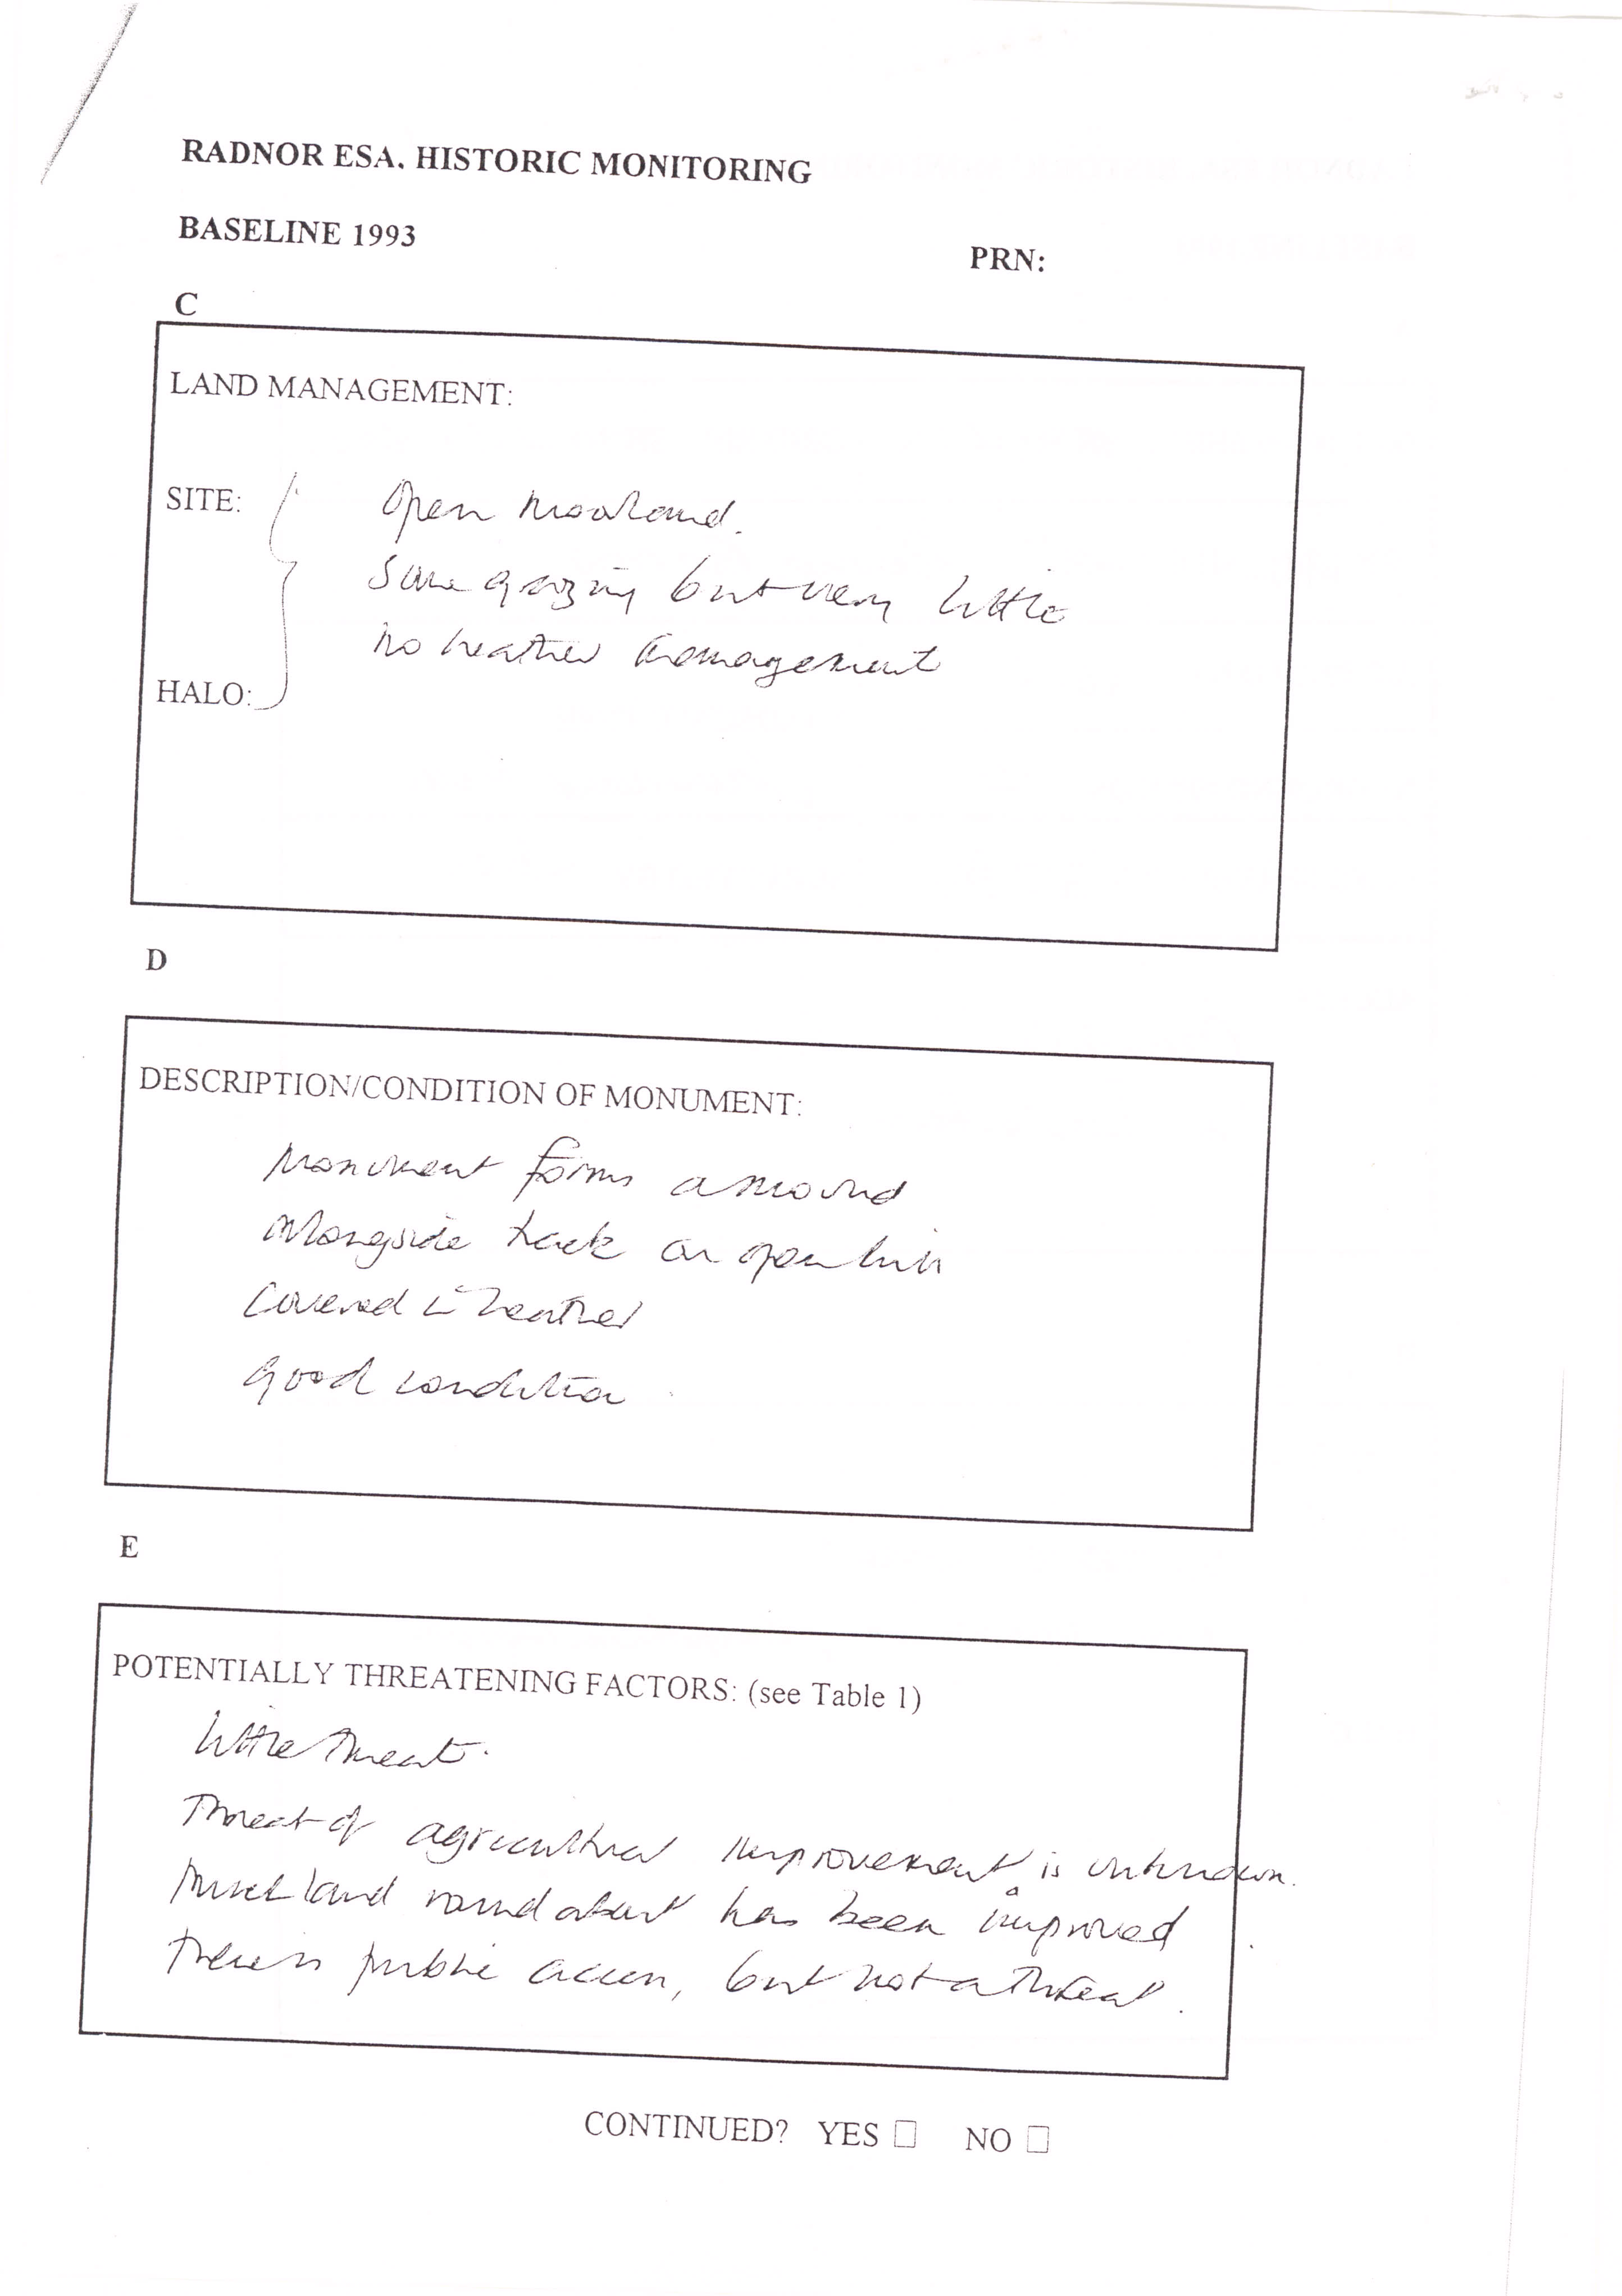 RADNOR ESA. HISTORIC MONITORING
BASELINE 1993
PRN:
C
LAND MANAGEMENT:
SITE:
Open moorland.
Some grazing but very little
no heather management
HALO:
D
DESCRIPTION/CONDITION OF MONUMENT:
Monument forms a mound
Alongside track on open hill
Covered in heather
Good condition
E
POTENTIALLY THREATENING FACTORS: (see Table 1)
Little threat.
Threat of agricultural improvement is unknown.
Much land round about has been improved
There is public access, but not a threat.
CONTINUED? YES ☐ NO ☐